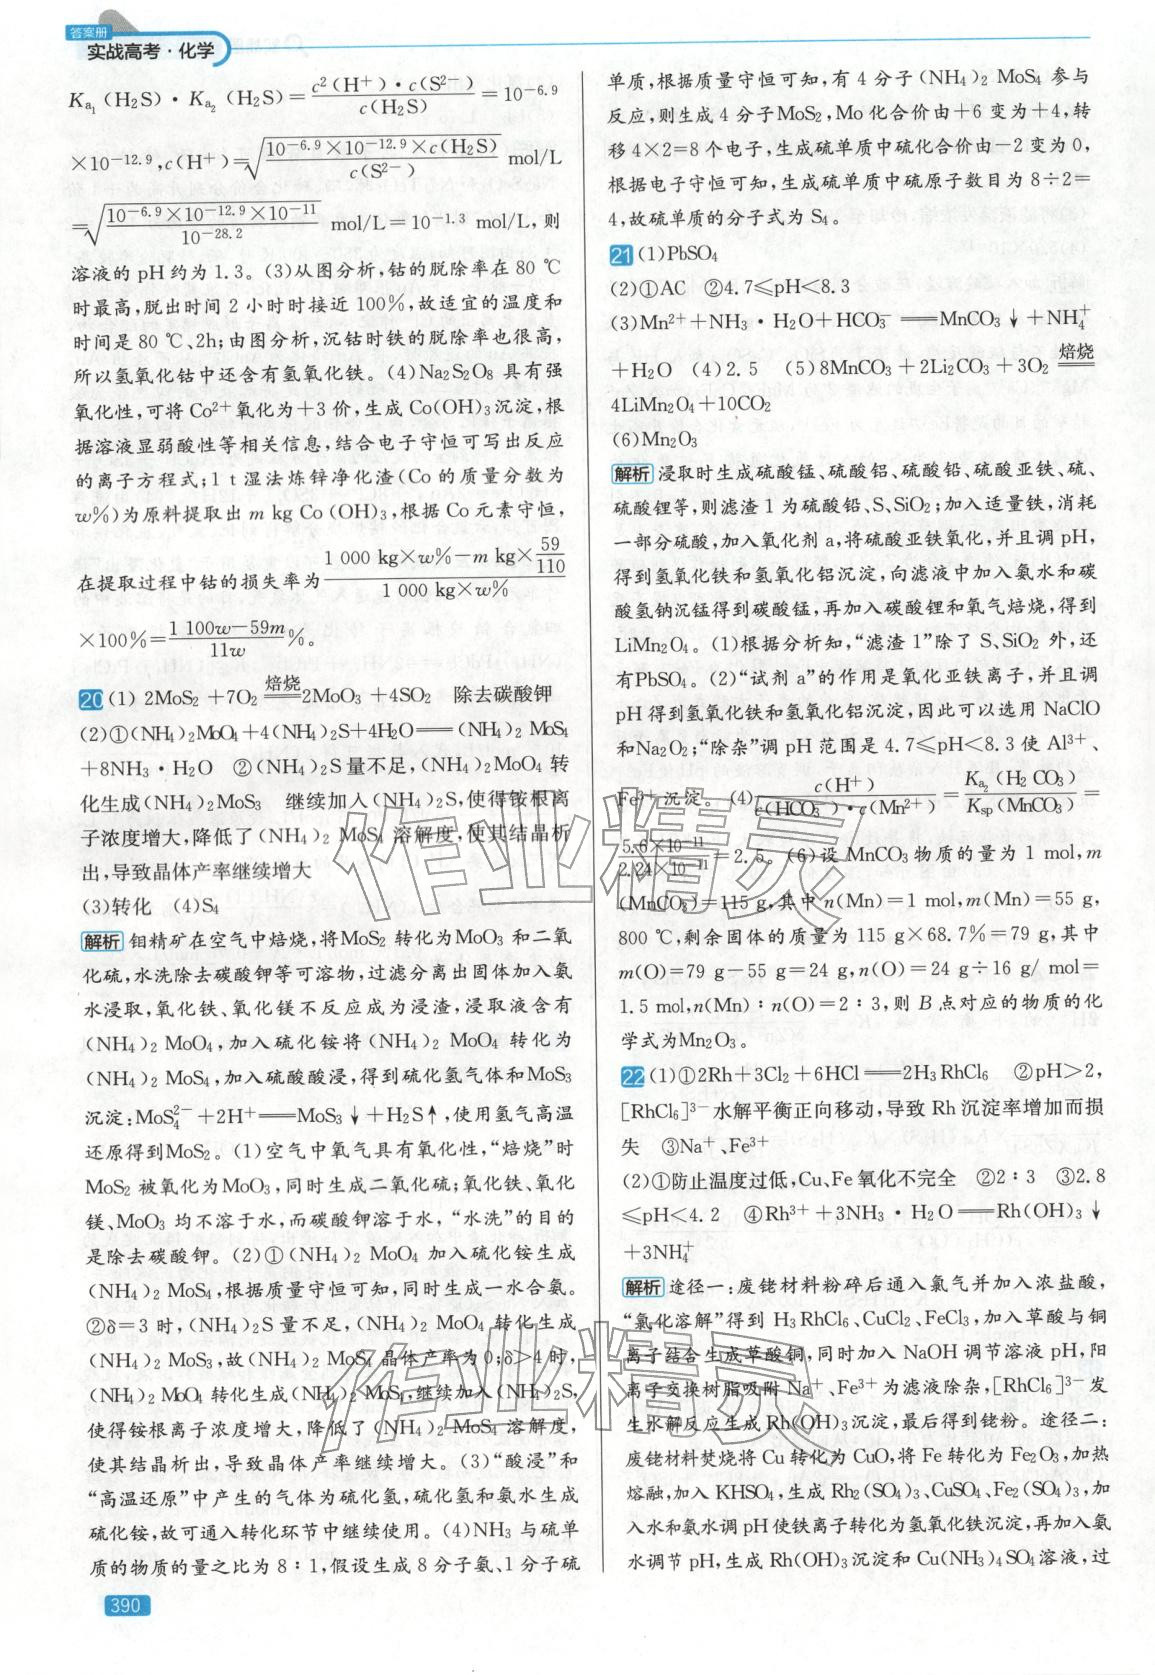 答案册
实战高考·化学
Ka₁(H₂S)·Ka₂(H₂S)=c²(H⁺)·c(S²⁻)/c(H₂S)=10⁻⁶·⁹
×10⁻¹²·⁹,c(H⁺)=√(10⁻⁶·⁹×10⁻¹²·⁹×c(H₂S)/c(S²⁻)) mol/L
=√(10⁻⁶·⁹×10⁻¹²·⁹×10⁻¹¹/10⁻²⁸·²) mol/L=10⁻¹·³ mol/L,则
溶液的 pH 约为 1.3。(3)从图分析,钴的脱除率在 80 ℃
时最高,脱出时间 2 小时时接近 100%,故适宜的温度和
时间是 80 ℃、2h;由图分析,沉钴时铁的脱除率也很高,
所以氢氧化钴中还含有氢氧化铁。(4)Na₂S₂O₈ 具有强
氧化性,可将 Co²⁺氧化为+3 价,生成 Co(OH)₃沉淀,根
据溶液显弱酸性等相关信息,结合电子守恒可写出反应
的离子方程式;1 t 湿法炼锌净化渣(Co 的质量分数为
w%)为原料提取出 m kg Co(OH)₃,根据 Co 元素守恒,
在提取过程中钴的损失率为(1 000 kg×w%−m kg×59/110)/(1 000 kg×w%)
×100%=(1 100w−59m)/11w%。
20 (1) 2MoS₂+7O₂ 焙烧═ 2MoO₃+4SO₂ 除去碳酸钾
(2)①(NH₄)₂MoO₄+4(NH₄)₂S+4H₂O═(NH₄)₂MoS₄
+8NH₃·H₂O ②(NH₄)₂S 量不足,(NH₄)₂MoO₄ 转
化生成(NH₄)₂MoS₃ 继续加入(NH₄)₂S,使得铵根离
子浓度增大,降低了(NH₄)₂MoS₄ 溶解度,使其结晶析
出,导致晶体产率继续增大
(3)转化 (4)S₄
解析 钼精矿在空气中焙烧,将MoS₂ 转化为MoO₃ 和二氧
化硫,水洗除去碳酸钾等可溶物,过滤分离出固体加入氨
水浸取,氧化铁、氧化镁不反应成为浸渣,浸取液含有
(NH₄)₂MoO₄,加入硫化铵将(NH₄)₂MoO₄ 转化为
(NH₄)₂MoS₄,加入硫酸酸浸,得到硫化氢气体和MoS₃
沉淀:MoS₄²⁻+2H⁺═MoS₃↓+H₂S↑,使用氢气高温
还原得到MoS₂。(1)空气中氧气具有氧化性,“焙烧”时
MoS₂ 被氧化为MoO₃,同时生成二氧化硫;氧化铁、氧化
镁、MoO₃ 均不溶于水,而碳酸钾溶于水,“水洗”的目的
是除去碳酸钾。(2)①(NH₄)₂MoO₄ 加入硫化铵生成
(NH₄)₂MoS₄,根据质量守恒可知,同时生成一水合氨。
②δ=3 时,(NH₄)₂S 量不足,(NH₄)₂MoO₄ 转化生成
(NH₄)₂MoS₃,故(NH₄)₂MoS₄ 晶体产率为 0;δ>4 时,
(NH₄)₂MoO₄ 转化生成(NH₄)₂MoS₄,继续加入(NH₄)₂S,
使得铵根离子浓度增大,降低了(NH₄)₂MoS₄ 溶解度,
使其结晶析出,导致晶体产率继续增大。(3)“酸浸”和
“高温还原”中产生的气体为硫化氢,硫化氢和氨水生成
硫化铵,故可通入转化环节中继续使用。(4)NH₃ 与硫单
质的物质的量之比为 8∶1,假设生成 8 分子氨、1 分子硫
单质,根据质量守恒可知,有 4 分子(NH₄)₂MoS₄ 参与
反应,则生成 4 分子MoS₂,Mo 化合价由+6 变为+4,转
移 4×2=8 个电子,生成硫单质中硫化合价由−2 变为 0,
根据电子守恒可知,生成硫单质中硫原子数目为 8÷2=
4,故硫单质的分子式为 S₄。
21 (1)PbSO₄
(2)①AC ②4.7≤pH<8.3
(3)Mn²⁺+NH₃·H₂O+HCO₃⁻═MnCO₃↓+NH₄⁺
+H₂O (4)2.5 (5)8MnCO₃+2Li₂CO₃+3O₂ 焙烧═
4LiMn₂O₄+10CO₂
(6)Mn₂O₃
解析 浸取时生成硫酸锰、硫酸铝、硫酸铅、硫酸亚铁、硫、
硫酸锂等,则滤渣 1 为硫酸铅、S、SiO₂;加入适量铁,消耗
一部分硫酸,加入氧化剂 a,将硫酸亚铁氧化,并且调 pH,
得到氢氧化铁和氢氧化铝沉淀,向滤液中加入氨水和碳
酸氢钠沉锰得到碳酸锰,再加入碳酸锂和氧气焙烧,得到
LiMn₂O₄。(1)根据分析知,“滤渣 1”除了 S、SiO₂ 外,还
有PbSO₄。(2)“试剂 a”的作用是氧化亚铁离子,并且调
pH 得到氢氧化铁和氢氧化铝沉淀,因此可以选用 NaClO
和Na₂O₂;“除杂”调 pH 范围是 4.7≤pH<8.3 使 Al³⁺、
Fe³⁺沉淀。(4)c(H⁺)/(c(HCO₃⁻)·c(Mn²⁺))=Ka₂(H₂CO₃)/Ksp(MnCO₃)=
5.6×10⁻¹¹/2.24×10⁻¹¹=2.5。(6)设 MnCO₃物质的量为 1 mol,m
(MnCO₃)=115 g,其中 n(Mn)=1 mol,m(Mn)=55 g,
800 ℃,剩余固体的质量为 115 g×68.7%=79 g,其中
m(O)=79 g−55 g=24 g,n(O)=24 g÷16 g/mol=
1.5 mol,n(Mn)∶n(O)=2∶3,则 B 点对应的物质的化
学式为Mn₂O₃。
22 (1)①2Rh+3Cl₂+6HCl═2H₃RhCl₆ ②pH>2,
[RhCl₆]³⁻水解平衡正向移动,导致 Rh 沉淀率增加而损
失 ③Na⁺、Fe³⁺
(2)①防止温度过低,Cu、Fe 氧化不完全 ②2∶3 ③2.8
≤pH<4.2 ④Rh³⁺+3NH₃·H₂O═Rh(OH)₃↓
+3NH₄⁺
解析 途径一:废铑材料粉碎后通入氯气并加入浓盐酸,
“氯化溶解”得到 H₃RhCl₆、CuCl₂、FeCl₃,加入草酸与铜
离子结合生成草酸铜,同时加入 NaOH 调节溶液 pH,阳
离子交换树脂吸附 Na⁺、Fe³⁺为滤液除杂,[RhCl₆]³⁻发
生水解反应生成 Rh(OH)₃沉淀,最后得到铑粉。途径二:
废铑材料焚烧将 Cu 转化为 CuO,将 Fe 转化为 Fe₂O₃,加热
熔融,加入 KHSO₄,生成 Rh₂(SO₄)₃、CuSO₄、Fe₂(SO₄)₃,加
入水和氨水调 pH 使铁离子转化为氢氧化铁沉淀,再加入氨
水调节 pH,生成 Rh(OH)₃沉淀和 Cu(NH₃)₄SO₄溶液,过
390
作业精灵
作业精灵